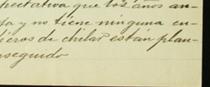 pectativa que los años an-
ta y no tiene ninguna en-
lieros de chilar están plan-
nseguido